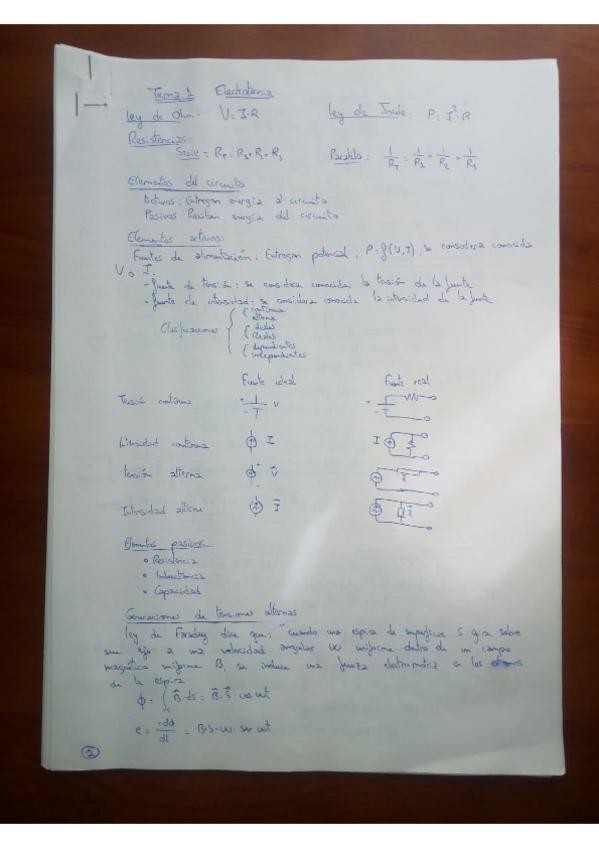 Tema 1 Electrotecnia
Ley de Ohm: V = I·R Ley de Joule: P = I²·R
Resistencias:
Serie = R_T = R_1 + R_2 + R_3 Paralelo: 1/R_T = 1/R_1 + 1/R_2 + 1/R_3
Elementos del circuito
Activos: Entregan energía al circuito
Pasivos: Reciben energía del circuito
Elementos activos:
Fuentes de alimentación: Entregan potencial, P = f(V,I), se considera conocida
V o I.
- fuente de tensión: se considera conocida la tensión de la fuente
- fuente de intensidad: se considera conocida la intensidad de la fuente
Clasificaciones { { continua
alterna
{ ideales
Reales
{ dependientes
independientes
Fuente ideal Fuente real
Tensión continua + - V + -
Intensidad continua I I
tensión alterna + - V
Intensidad alterna I
Elementos pasivos
• Resistencia
• Inductancia
• Capacidad
Generaciones de tensiones alternas
Ley de Faraday dice que: "cuando una espira de superficie S gira sobre
su eje a una velocidad angular ω uniforme dentro de un campo
magnético uniforme B, se induce una fuerza electromotriz en los
de la espira
ϕ = ∫ B⃗·ds = B⃗·S⃗·cos ωt
e = -dϕ/dt = B·S·ω·sen ωt
2